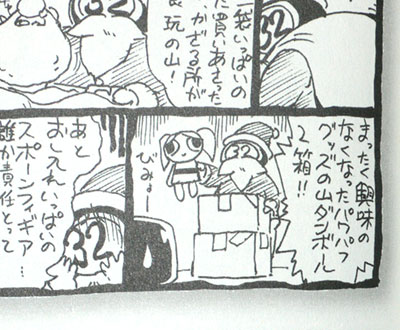 32
袋いっぱいの
た買いあさった
かざる所が
玩の山!
まったく興味の
なくなったパワパフ
グッズの山ダンボール
2箱!!
32
びみょー
あと
おし入れいっぱいの
スポーンフィギア…
誰か責任とって
32